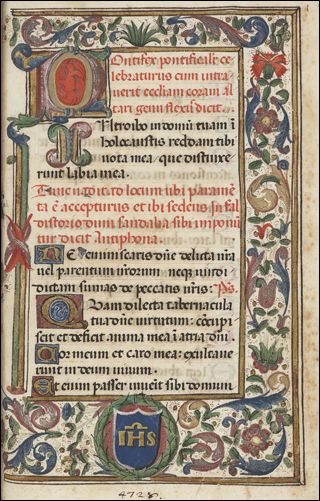 Pontifex pontificalit̄ ce
lebraturus cum intra
uerit eccl̄iam coram al
tari genu flexus dicit.
Introibo in domū tuam ī
holocaustis reddam tibi
uota mea. que distinxe
runt labia mea.
Tunc uadit ad locum ubi paramē
ta ē accepturus et ibi sedens ī fal
distorio dum sandalia sibi imponū
tur dicit antiphona.
Ne reminiscaris dn̄e delicta mr̄a
uel parentum nr̄orum neque uindi
ctam sumas de peccatis nr̄is. Ps.
Quam dilecta tabernacula
tua dn̄e uirtutum: cōcupi
scit et deficit anima mea ī atria dn̄i.
Cor meum et caro mea: exultaue
runt in deum uiuum.
Et enim passer inuenit sibi domum
IHS
4728.